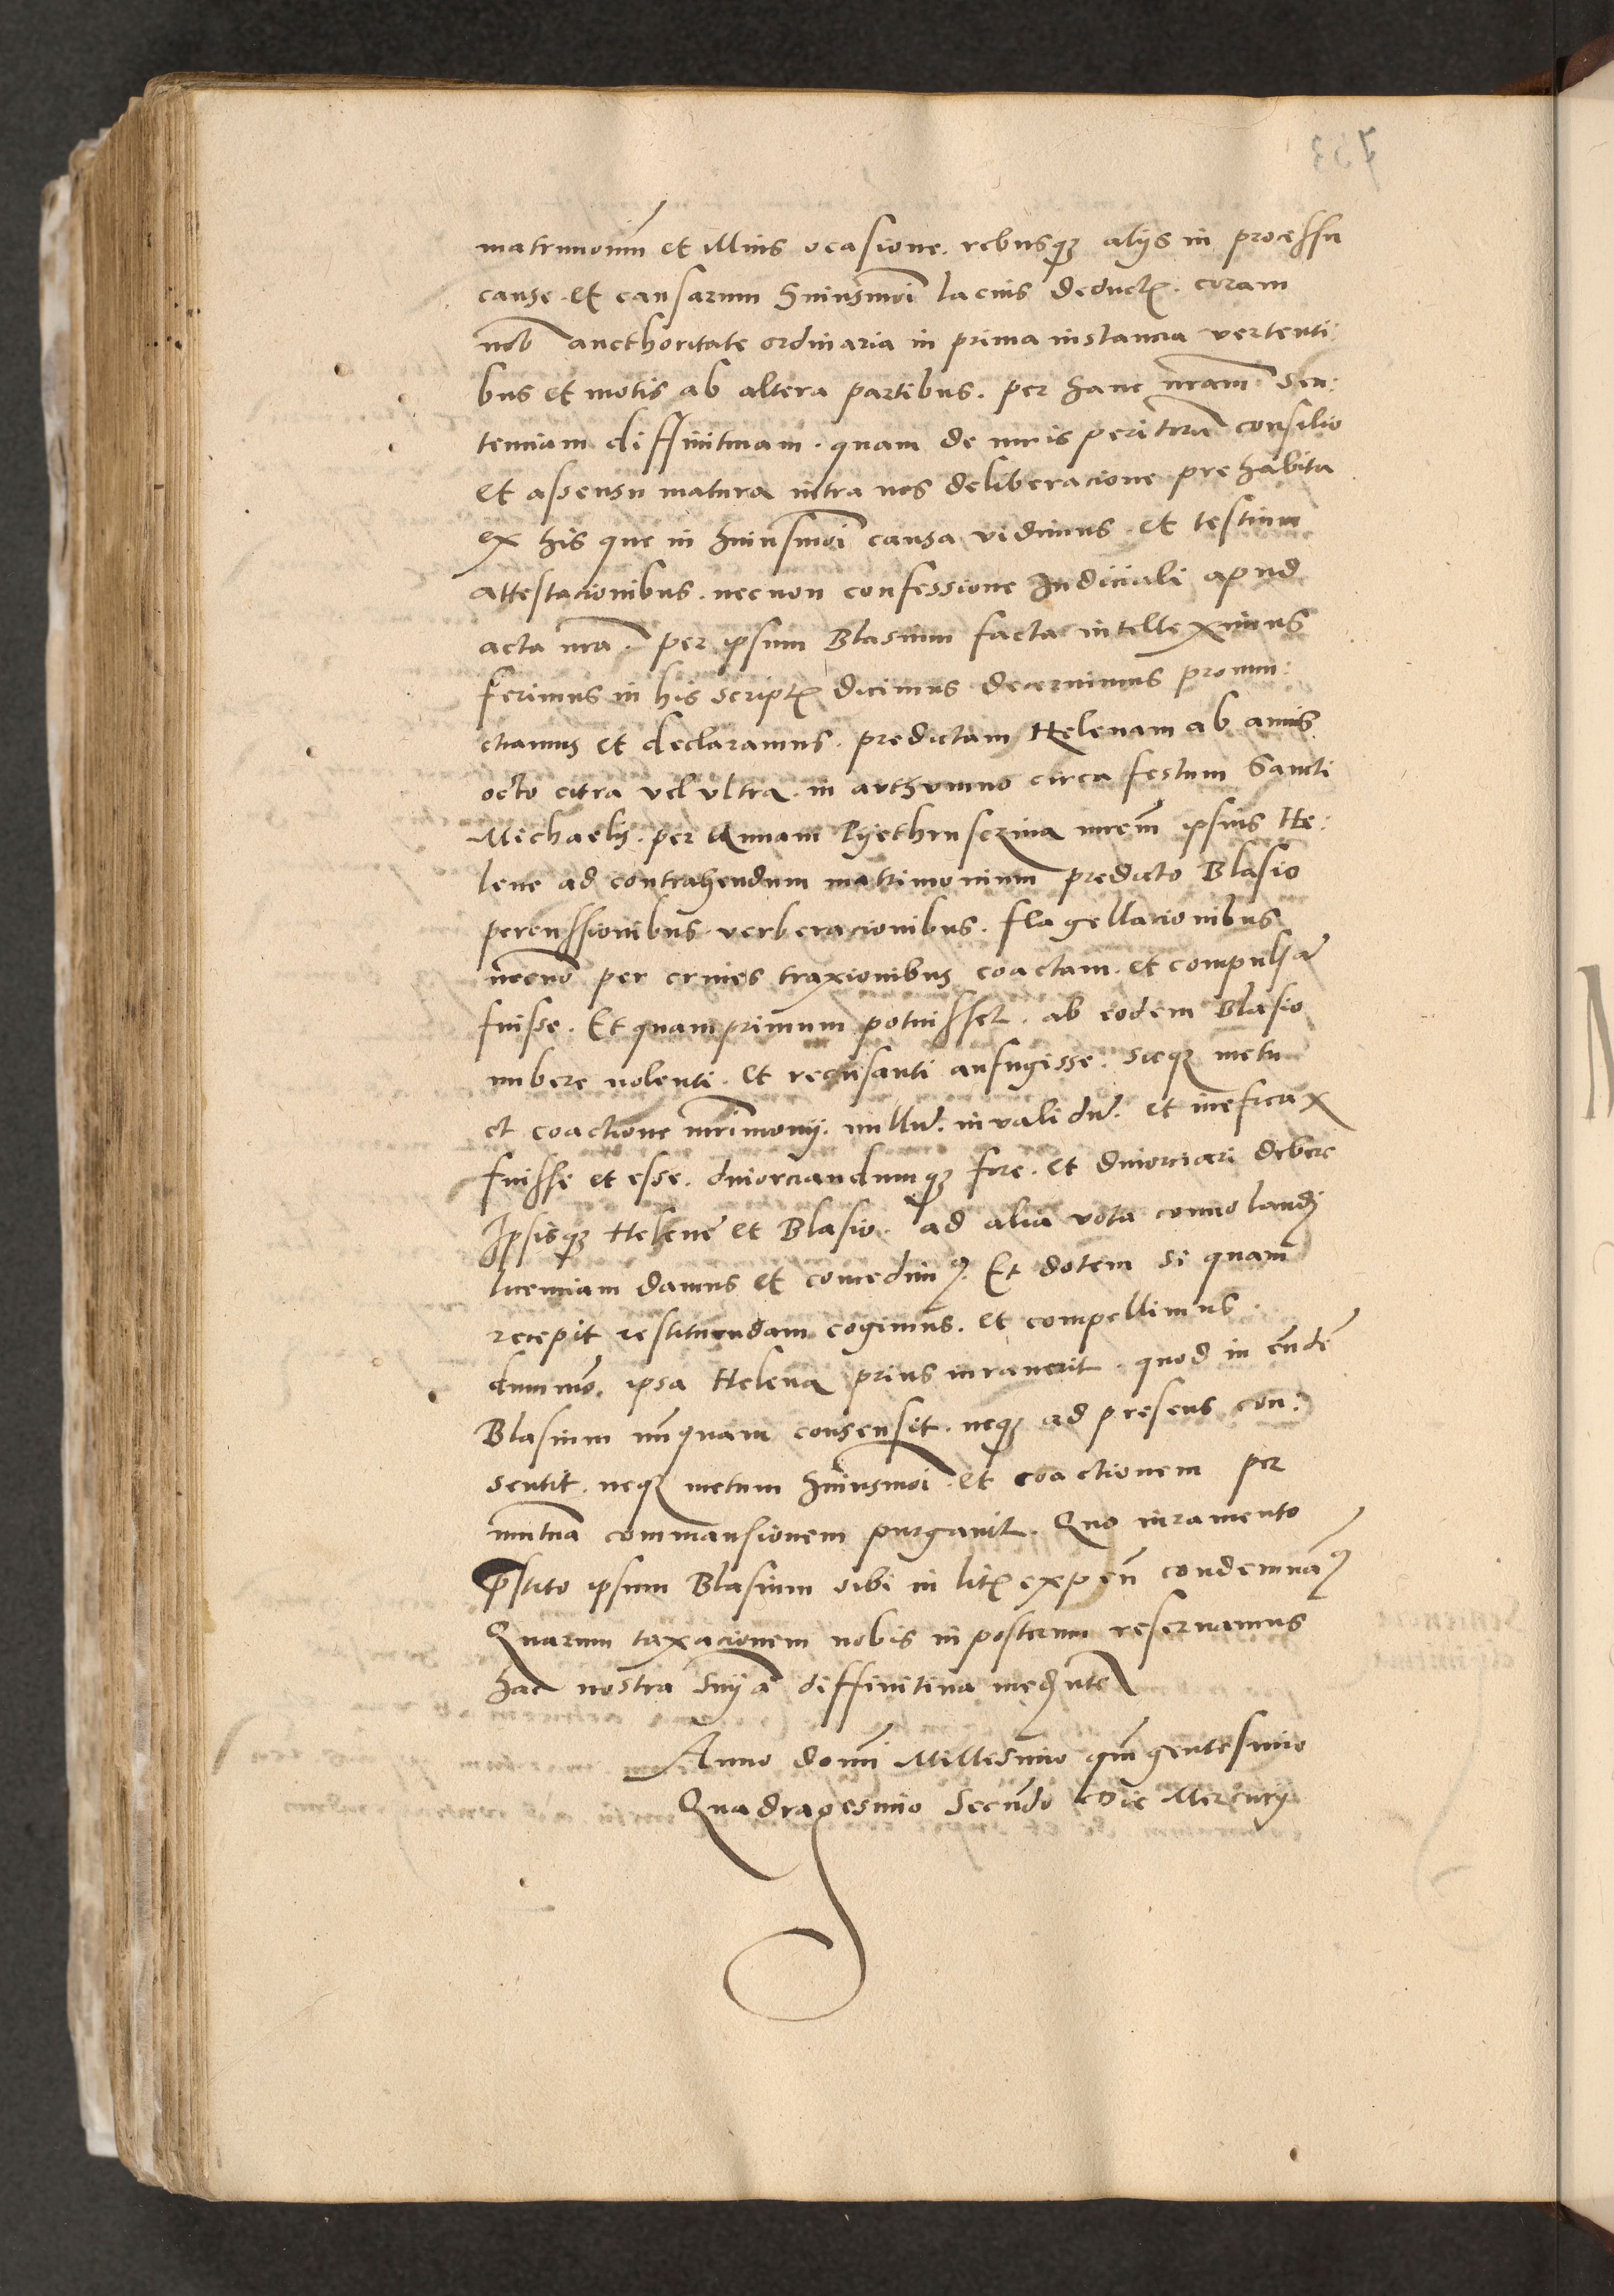 matrimoniũ et illius ocasione. rebusqȝ alijs in processu
cause et causarum huiusmõi lacius deductꝭ. coram
nob aucthoritate ordinaria in prima instancia vertenti:
bus et motis ab altera partibus. per hanc nrãm sen:
tenciam diffinitiuam. quam de iuris peritorũ consilio
et assensu matura intra nos deliberacione prehabita
ex his que in huiusmõi causa vidimus. et testium
attestacionibus. necnon confessione Iudiciali apud
acta nrã. per ipsum Blasium facta intelleximus
ferimus in his scriptꝭ dicimus decernimus pronun:
ctiamus et declaramus. predictam Helenam ab annis
octo citra vel vltra. in authumno circa festum Sancti
Michaelis. per Annam mrẽm ipsius He:
lene ad contrahendum matrimonium predicto Blasio
percussionibus verberacionibus. flagellacionibus
necnõ per crines traxionibus coactam. et compulsã
fuisse. Et quamprimum potuisset. ab eodem Blasio
nubere nolenti. et recusanti aufugisse. sicqȝ metu
et coactione mrimonij. nullũ. inualidũ. et ineficax
fuisse et esse. diuorciandumqȝ fore. et diuorciari debere
Ipsisqȝ Helene et Blasio. ad alia vota conuolandi
licenciam damus et concedimꝰ. Et dotem si quam
recepit restituendam cogimus. et compellimus.
dummõ. ipsa Helena prius iurauerit. quod in eũdẽ
Blasium nũquam consensit. neqȝ ad presens con:
sentit. neqȝ metum huiusmõi et coactionem per
mutuã commansionem purgauit. Quo iuramento
p̃stito ipsum Blasium sibi in litꝭ expeñ condemnãꝰ
Quarum taxacionem nobis in posterum reseruamus
hac nostra snĩa diffinitiua medjnte
Anno domĩ Millesimo quĩgentesimo
Quadragesimo Secũdo Die Mercurij